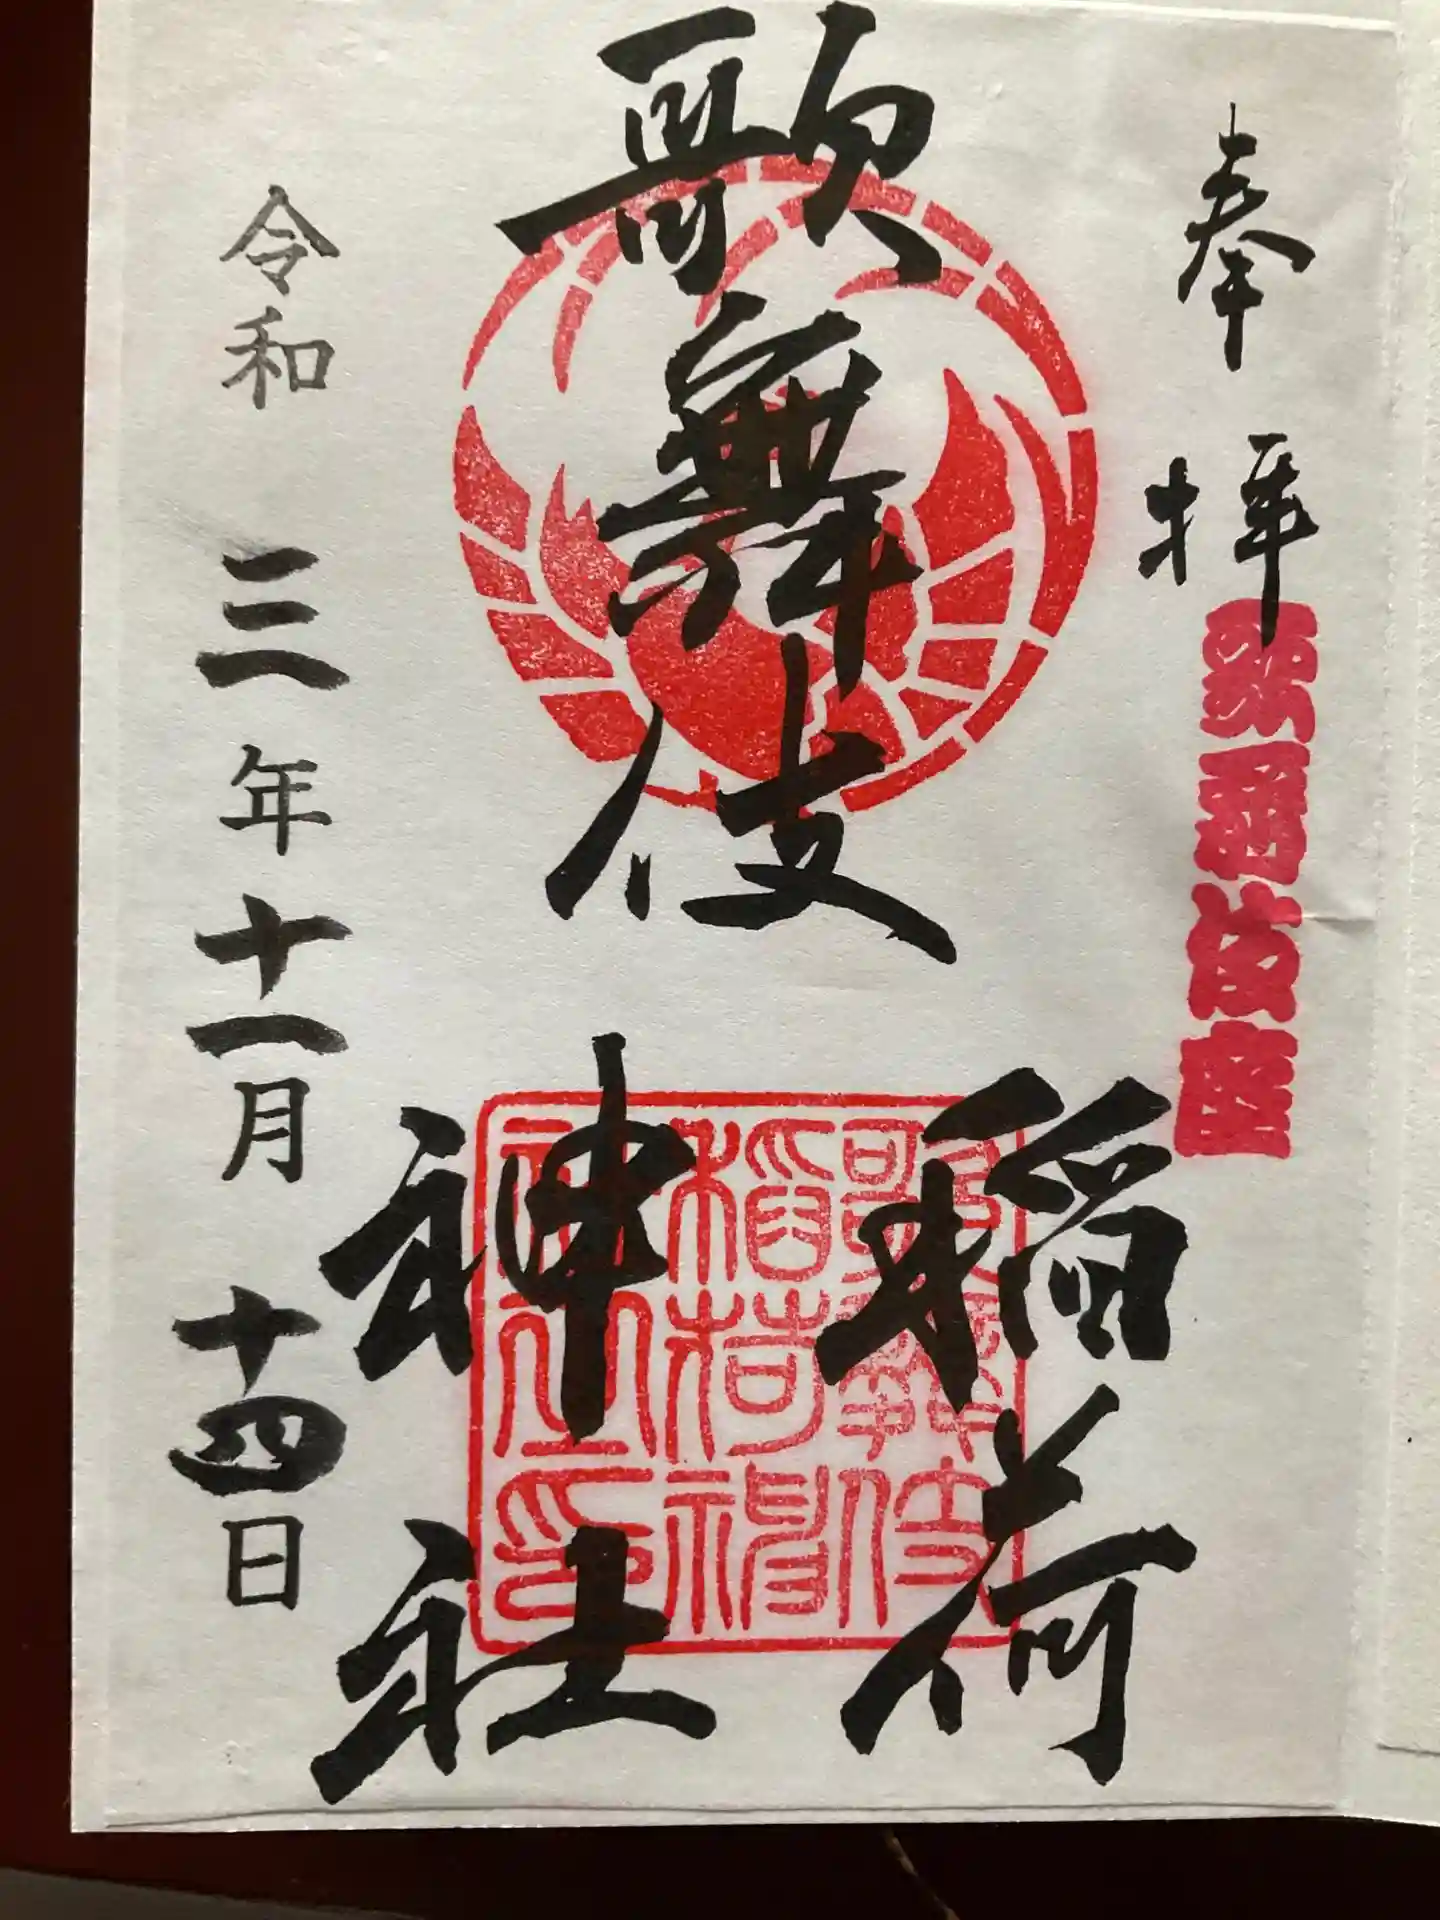 奉拝
歌舞伎座
歌舞伎
稲荷
神社
歌舞伎
稲荷神
社之印
令和三年十一月十四日